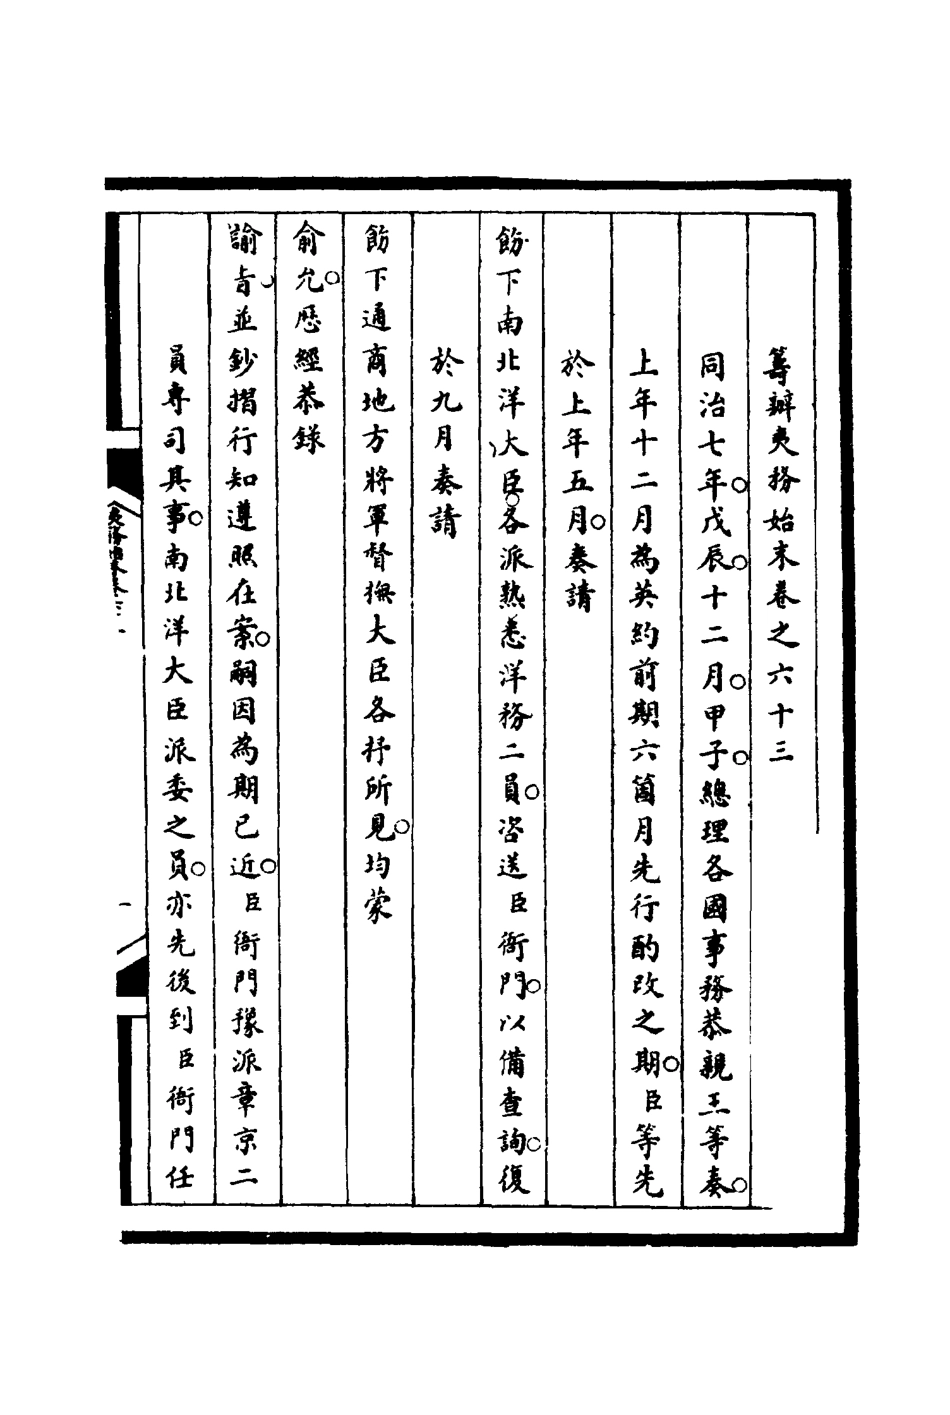 籌辦夷務始末卷之六十三
同治七年。戊辰。十二月。甲子。總理各國事務恭親王等奏。
上年十二月為英約前期六箇月先行酌改之期。臣等先
於上年五月。奏請
飭下南北洋大臣。各派熟悉洋務二員。咨送臣衙門。以備查詢。復
於九月奏請
飭下通商地方將軍督撫大臣各抒所見。均蒙
俞允。歷經恭錄
諭旨並鈔摺行知遵照在案。嗣因為期已近。臣衙門豫派章京二
員專司其事。南北洋大臣派委之員。亦先後到臣衙門任
夷務始末卷六三
一